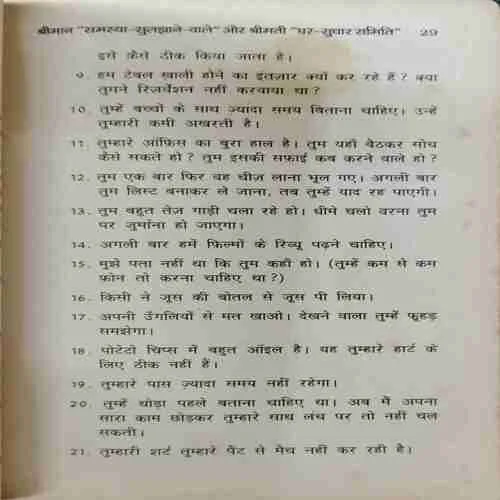 श्रीमान "समस्या-सुलझाने-वाले" और श्रीमती "घर-सुधार समिति" 29
इसे कैसे ठीक किया जाता है।
9. हम टेबल खाली होने का इंतज़ार क्यों कर रहे हैं? क्या
तुमने रिज़र्वेशन नहीं करवाया था?
10. तुम्हें बच्चों के साथ ज्यादा समय बिताना चाहिए। उन्हें
तुम्हारी कमी अखरती है।
11. तुम्हारे ऑफ़िस का बुरा हाल है। तुम यहाँ बैठकर सोच
कैसे सकते हो? तुम इसकी सफ़ाई कब करने वाले हो?
12. तुम एक बार फिर वह चीज़ लाना भूल गए। अगली बार
तुम लिस्ट बनाकर ले जाना, तब तुम्हें याद रह पाएगी।
13. तुम बहुत तेज़ गाड़ी चला रहे हो। धीमे चलो वरना तुम
पर जुर्माना हो जाएगा।
14. अगली बार हमें फिल्मों के रिव्यू पढ़ने चाहिए।
15. मुझे पता नहीं था कि तुम कहाँ हो। (तुम्हें कम से कम
फ़ोन तो करना चाहिए था?)
16. किसी ने जूस की बोतल से जूस पी लिया।
17. अपनी उँगलियों से मत खाओ। देखने वाला तुम्हें फूहड़
समझेगा।
18. पोटेटो चिप्स में बहुत ऑइल है। यह तुम्हारे हार्ट के
लिए ठीक नहीं हैं।
19. तुम्हारे पास ज़्यादा समय नहीं रहेगा।
20. तुम्हें थोड़ा पहले बताना चाहिए था। अब मैं अपना
सारा काम छोड़कर तुम्हारे साथ लंच पर तो नहीं चल
सकती।
21. तुम्हारी शर्ट तुम्हारे पैंट से मैच नहीं कर रही है।